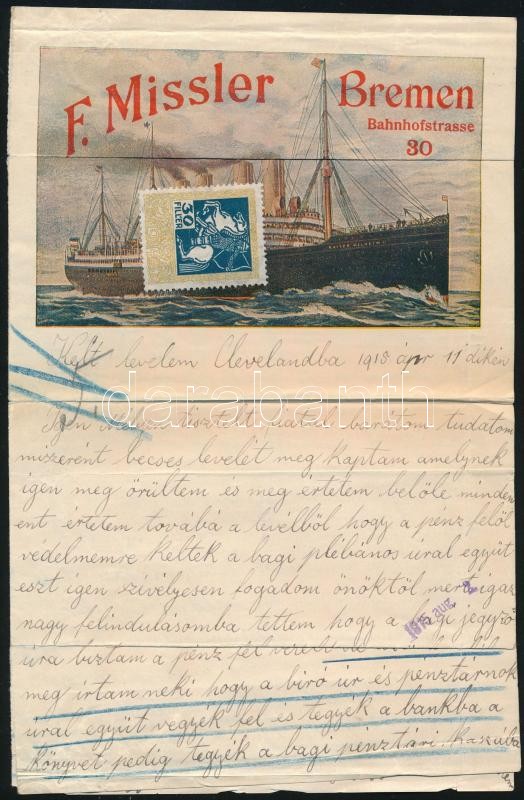 F. Missler Bremen
Bahnhofstrasse
30
30
FILLÉR
Kelt levelem Clevelandba 1915 ápr 11 dikén
darabanth
tisztelt fiatal barátom tudatom
miszerént becses levelét meg kaptam amelynek
igen meg örültem és meg értetem belöle minden
ent értetem továbá a levélböl hogy a pénz felöl
védelmemre keltek a bagi plébános úral együt
eszt igen szivélyesen fogadom önöktöl mert igaz
nagy felindulásomba tettem hogy a bagi jegyzö
1915 aug
úra biztam a pénz fel
meg irtam neki hogy a biró úr és pénztárnok
úral együt vegyék fel és tegyék a bankba a
könyvet pedig tegyék a bagi pénztári kaszába